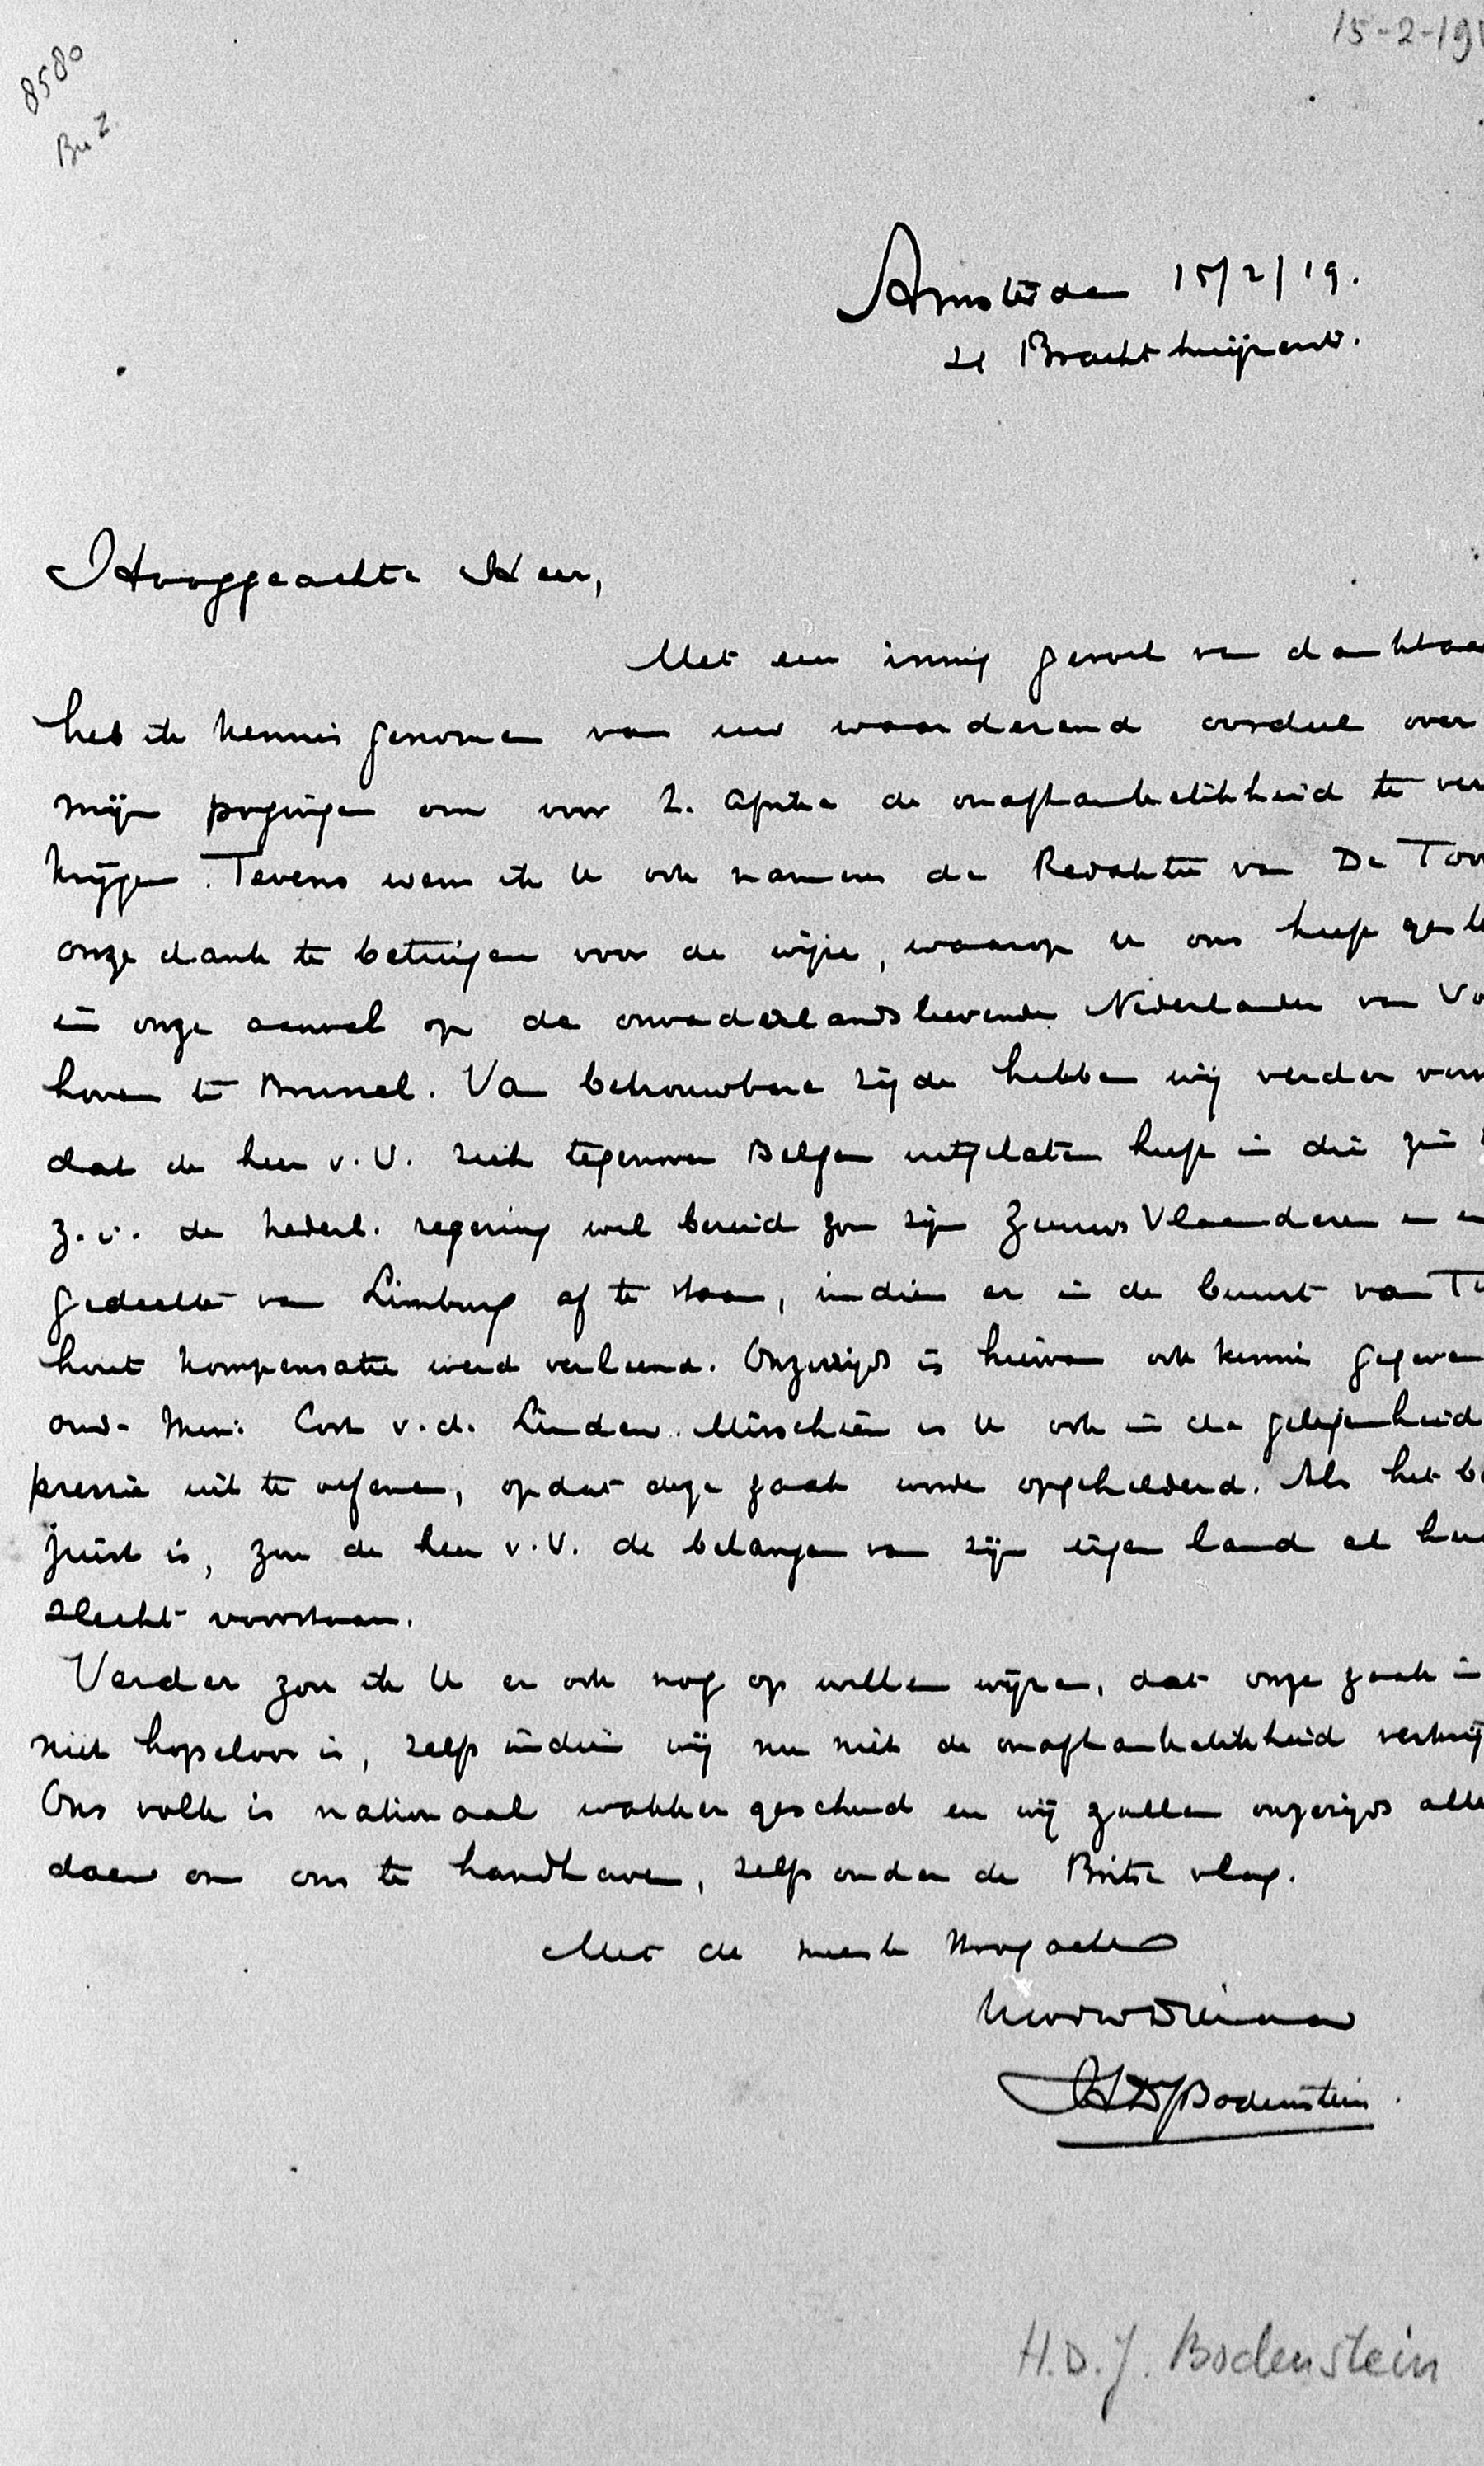 15-2-19
8580
Bu Z
Amsterdam 15/2/19.
21 Brachthuijzerstr.
Hooggeachte Heer,
Met een innig gevoel van dankbaa
heb ik kennis genomen van uw waarderend oordeel over
mijn pogingen om voor Z. Afrika de onafhankelikheid te ver
krijgen. Tevens wens ik U ook namens de Redaktie van De Toor
onze dank te betuigen voor de wijze, waarop u ons heeft geste
in onze aanval op de onvaderlandslievende Nederlander van Vo
hoven te Brussel. Van betrouwbare zijde hebben wij verder vern
dat de heer v. V. zich tegenover Belgen uitgelaten heeft in die zin
z. i. de Nederl. regering wel bereid zou zijn Zeeuws Vlaanderen en e
gedeelte van Limburg af te staan, indien er in de buurt van Tu
hout kompensatie werd verleend. Onzerzijds is hiervan ook kennis gegeven
oud-Min. Cort v.d. Linden. Misschien is U ook in de gelegenheid
pressie uit te oefenen, opdat deze zaak worde opgehelderd. Als het be
juist is, zou de heer v. V. de belangen van zijn eigen land al hee
slecht voorstaan.
Verder zou ik U er ook nog op willen wijzen, dat onze zaak i
niet hopeloos is, zelfs indien wij nu niet de onafhankelikheid verkrij
Ons volk is nationaal wakker geschud en wij zullen onzerzijds alle
doen om ons te handhaven, zelfs onder de Britse vlag.
Met de meeste Hoogachte
HDJBodenstein.
H.D.J. Bodenstein